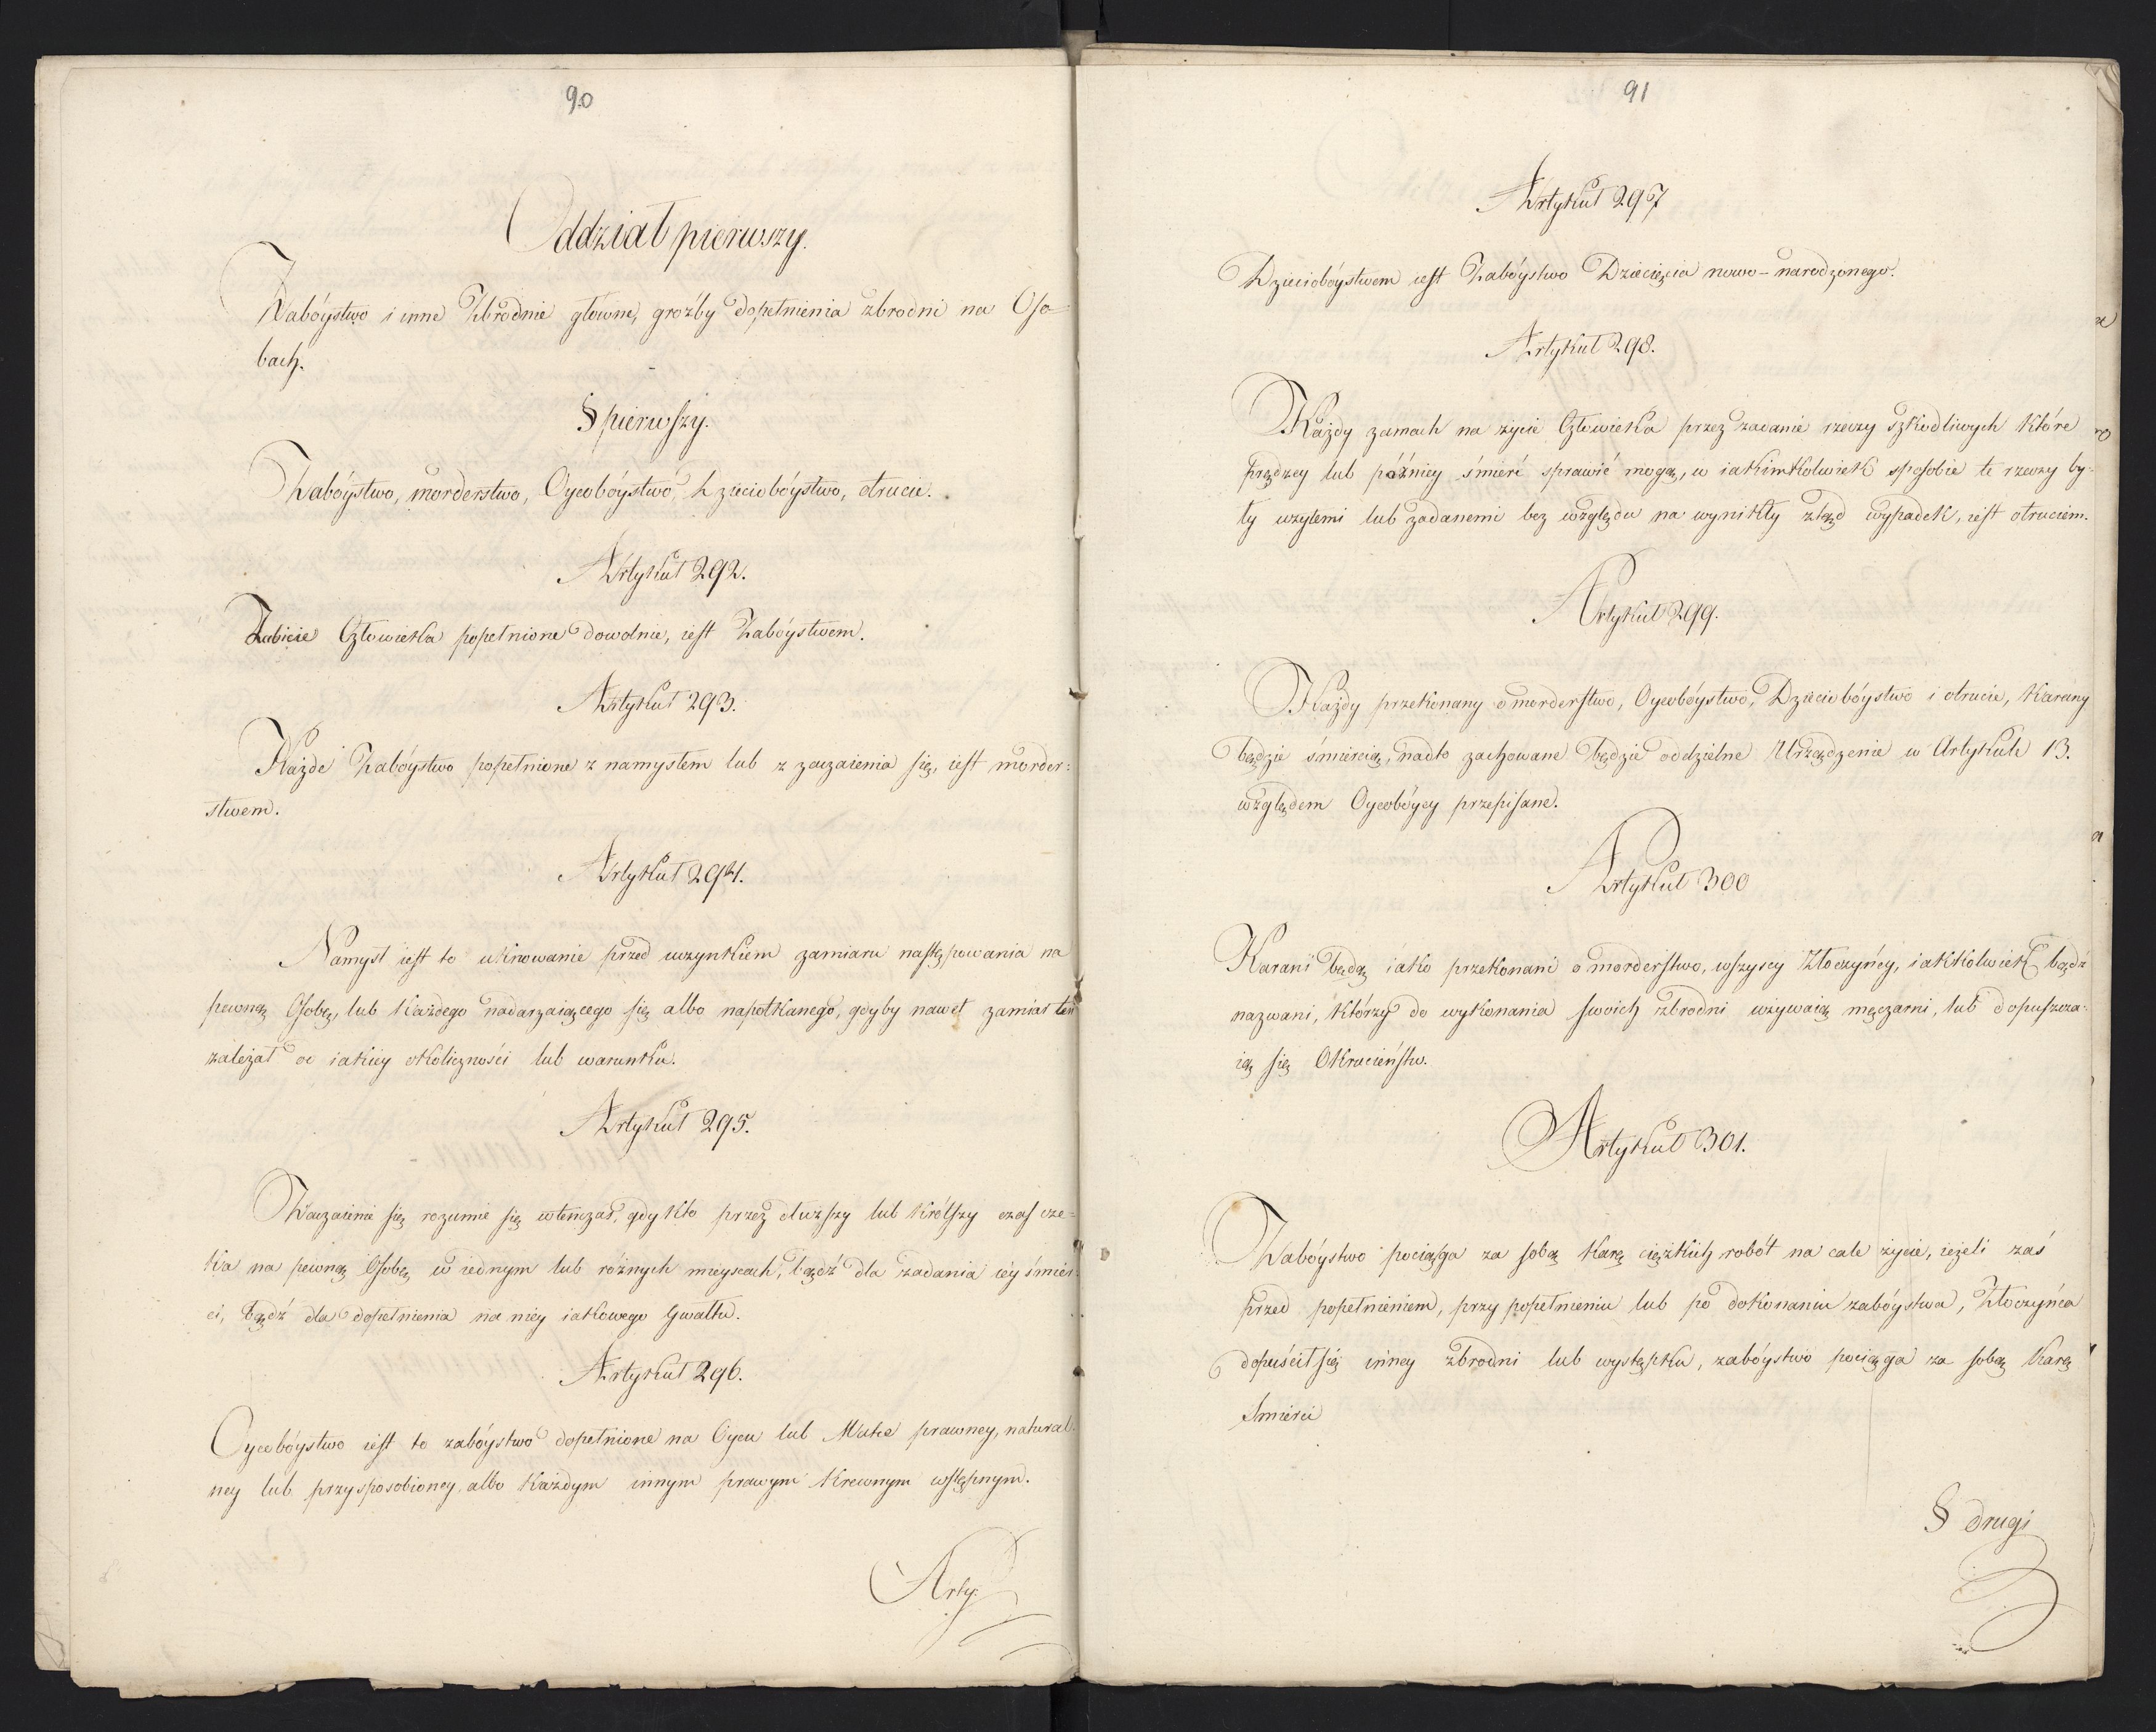 90
Oddział pierwszy.
Zabóystwo i inne Zbrodnie główne, groźby dopełnienia zbrodni na Oso=
bach.
§ pierwszy.
Zabóystwo, morderstwo, Oycobóystwo, Dzieciobóystwo, otrucie.
Artykuł 292.
Zabicie Człowieka popełnione dowolnie, iest Zabóystwem.
Artykuł 293.
Każde Zabóystwo popełnione z namysłem lub z zaczaienia się, iest morder:
stwem.
Artykuł 294.
Namysł iest to uknowanie przed uczynkiem zamiaru następowania na
pewną Osobę, lub każdego nadarzaiącego się albo napotkanego, gdyby nawet zamiar ten
zależał od iakiey okoliczności lub warunku.
Artykuł 295.
Zaczaienie się rozumie się wtenczas, gdy kto przez dłuższy lub krótszy czas cze=
ka na pewną Osobę, w iednym lub różnych mieyscach, bądź dla zadania iéy śmier:
ci, bądź dla dopełnienia na niey iakowego Gwałtu.
Artykuł 296.
Oycobóystwo iest to zabóystwo dopełnione na Oycu lub Matce prawney, natural:
ney lub przysposobioney, albo każdym innym prawym krewnym wstępnym.
Arty:
91
Artykuł 297
Dzieciobóystwem iest Zabóystwo Dziecięcia nowo-narodzonego.
Artykuł 298.
Każdy zamach na życie Człowieka przez zadanie rzeczy szkodliwych które
prędzey lub późniey śmierć sprawić mogą, w iakimkolwiek sposobie te rzeczy by-
ły użytemi lub zadanemi bez względu na wynikły ztąd wypadek, iest otruciem.
Artykuł 299.
Każdy przekonany o morderstwo, Oycobóystwo, Dzieciobóystwo i otrucie, karany
będzie śmiercią, nadto zachowane będzie oddzielne Urządzenie w Artykule 13.
względem Oycobóycy przepisane.
Artykuł 300
Karani będą iako przekonani o morderstwo, wszyscy Złoczyńcy, iakkolwiek bądź
nazwani, którzy do wykonania swoich zbrodni używaią męczarni, lub dopuszcza:
ią się Okrucieństw.
Artykuł 301.
Zabóystwo pociąga za sobą karę ciężkich robót na całe życie, ieżeli zaś
przed popełnieniem, przy popełnieniu lub po dokonaniu zabóystwa, Złoczyńca
dopuścił się inney zbrodni lub występku, zabóystwo pociąga za sobą karę
Śmierci
§ drugi